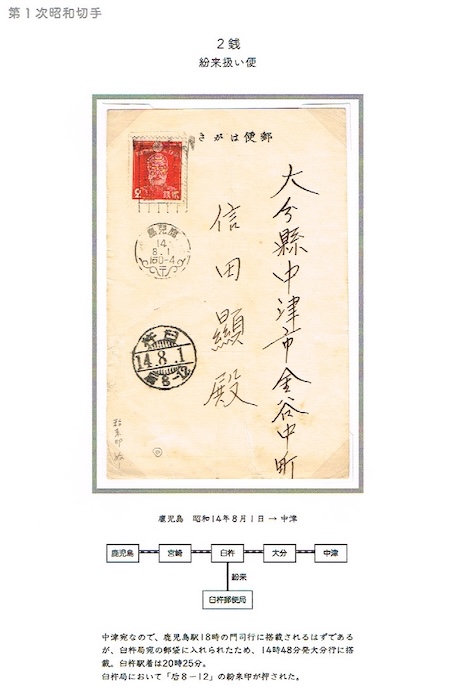 第1次昭和切手
2銭
紛来扱い便
郵便はがき
大分縣中津市金谷中町
信田顯殿
鹿児島
14
8.1
后0-4
臼杵
14.8.1
后8-12
鹿児島　昭和14年8月1日 → 中津
鹿児島　宮崎　臼杵　大分　中津
紛来
臼杵郵便局
中津宛なので、鹿児島駅18時の門司行に搭載されるはずである
が、臼杵局宛の郵袋に入れられたため、14時48分発大分行に搭
載。臼杵駅着は20時25分。
臼杵局において「后8－12」の紛来印が押された。